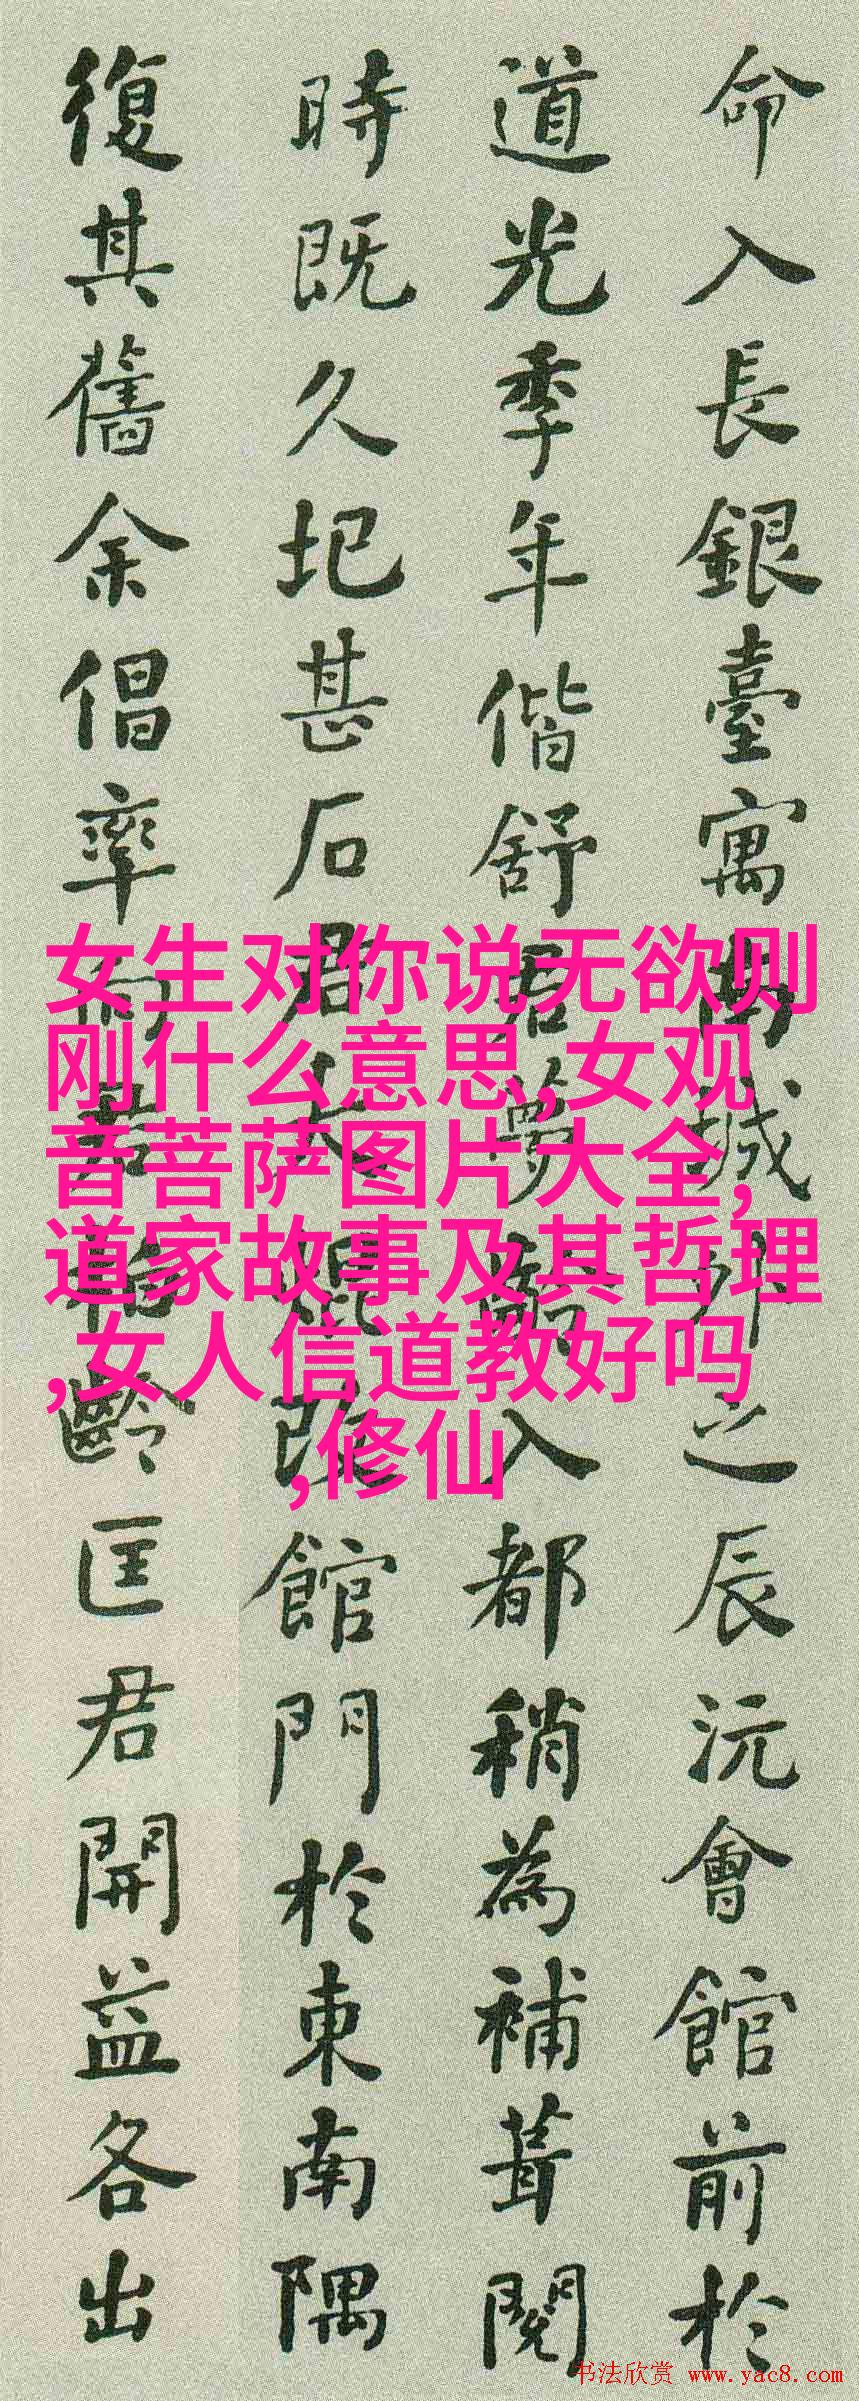 命入長銀臺寓南城外之辰沅會館前於
道光季年偕舒君夢入都稍為補葺閱
時既久圯甚石君大改館門於東南隅
復其舊余倡率齡匡君開益各出
女生对你说无欲则
刚什么意思,女观
音菩萨图片大全,
道家故事及其哲理
,女人信道教好吗
,修仙
书法欣赏 www.yac8.com